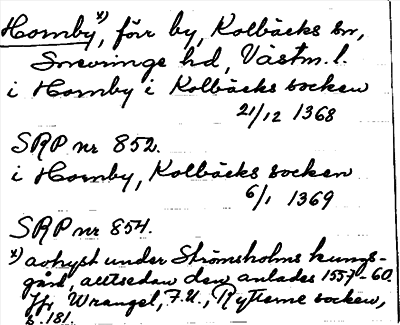 Hornby x), förr by, Kolbäcks sn,
Snevringe hd, Västm. l.
i Hornby i Kolbäcks socken
21/12 1368
SRP nr 852.
i Hornby, Kolbäcks socken
6/1 1369
SRP nr 854.
x) avhyst under Strömsholms kungs-
gård, alltsedan den anlades 1557-60.
Jfr Wrangel, F.U., Rytterne socken,
s. 181.